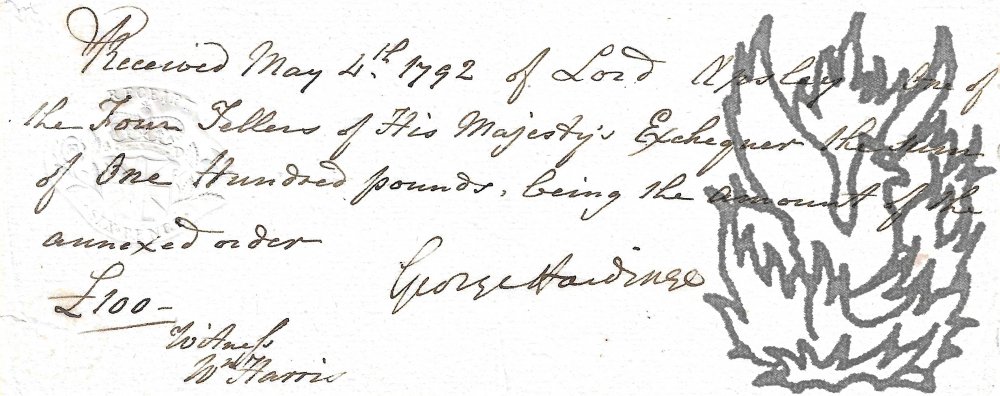 Received May 4th. 1792 of Lord Apsley One of
the Four Tellers of His Majesty's Exchequer the sum
of One Hundred pounds, being the amount of the
annexed order
George Hardinge
£100-
Witness
Wm Harris